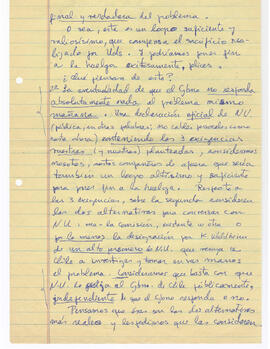 final y verdadera del problema.
O sea, éste es un logro suficiente y
valiosísimo, que compensa el sacrificio rea-
lizado por Uds. Y podríamos poner fin
a la huelga exitosamente, felices.
¿Qué piensan de esto?
2º La eventualidad de que el Gbno no responda
absolutamente nada al problema mismo
mañana. Una declaración oficial de N.U.
(pública, en otras palabras, no
conteniendo las 3 exigencias
nuestras (y vuestras) planteadas, consideramos
nosotros, sus compañeros de afuera que sería
también un logro altísimo y suficiente
para poner fin a la huelga. Respecto a
las 3 exigencias, sobre la segunda consideren
las dos alternativas para conversar con
N.U.: una - la comisión, existente u otra o
por lo menos la designación por K. Waldheim
de un alto personero de N.U. que venga a
Chile a investigar y tomar en sus manos
el problema. Consideramos que basta con que
N.U. lo exija al Gbno. de Chile públicamente,
independiente de que el Gbno responda o no.
Pensamos que esas son las dos alternativas
más reales y les pedimos que las consideren